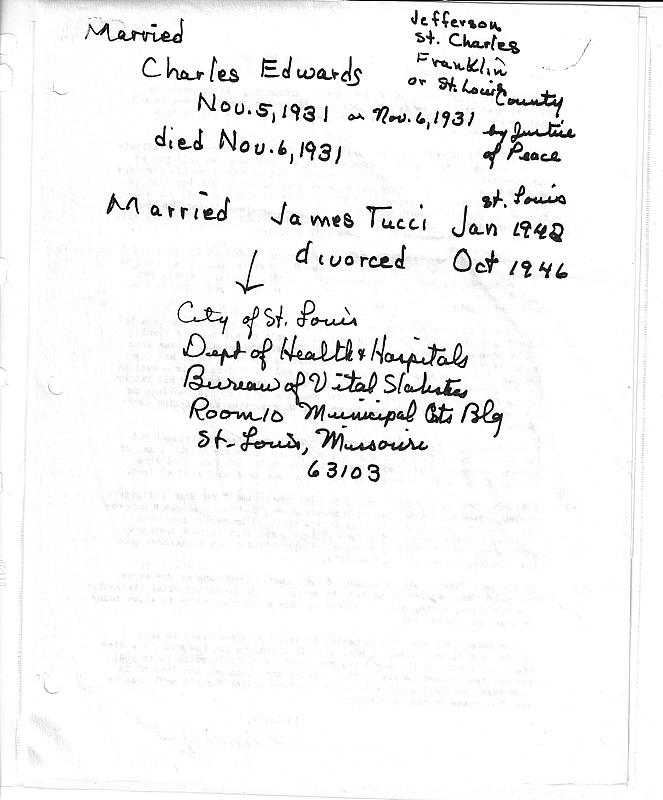 Married
Jefferson
St. Charles
Franklin
or St. Louis County
by Justice
of Peace
Charles Edwards
Nov. 5, 1931 or Nov. 6, 1931
died Nov. 6, 1931
St. Louis
Married James Tucci Jan 1942
divorced Oct 1946
City of St. Louis
Dept of Health & Hospitals
Bureau of Vital Statistics
Room 10 Municipal Cts Blg
St. Louis, Missouri
63103